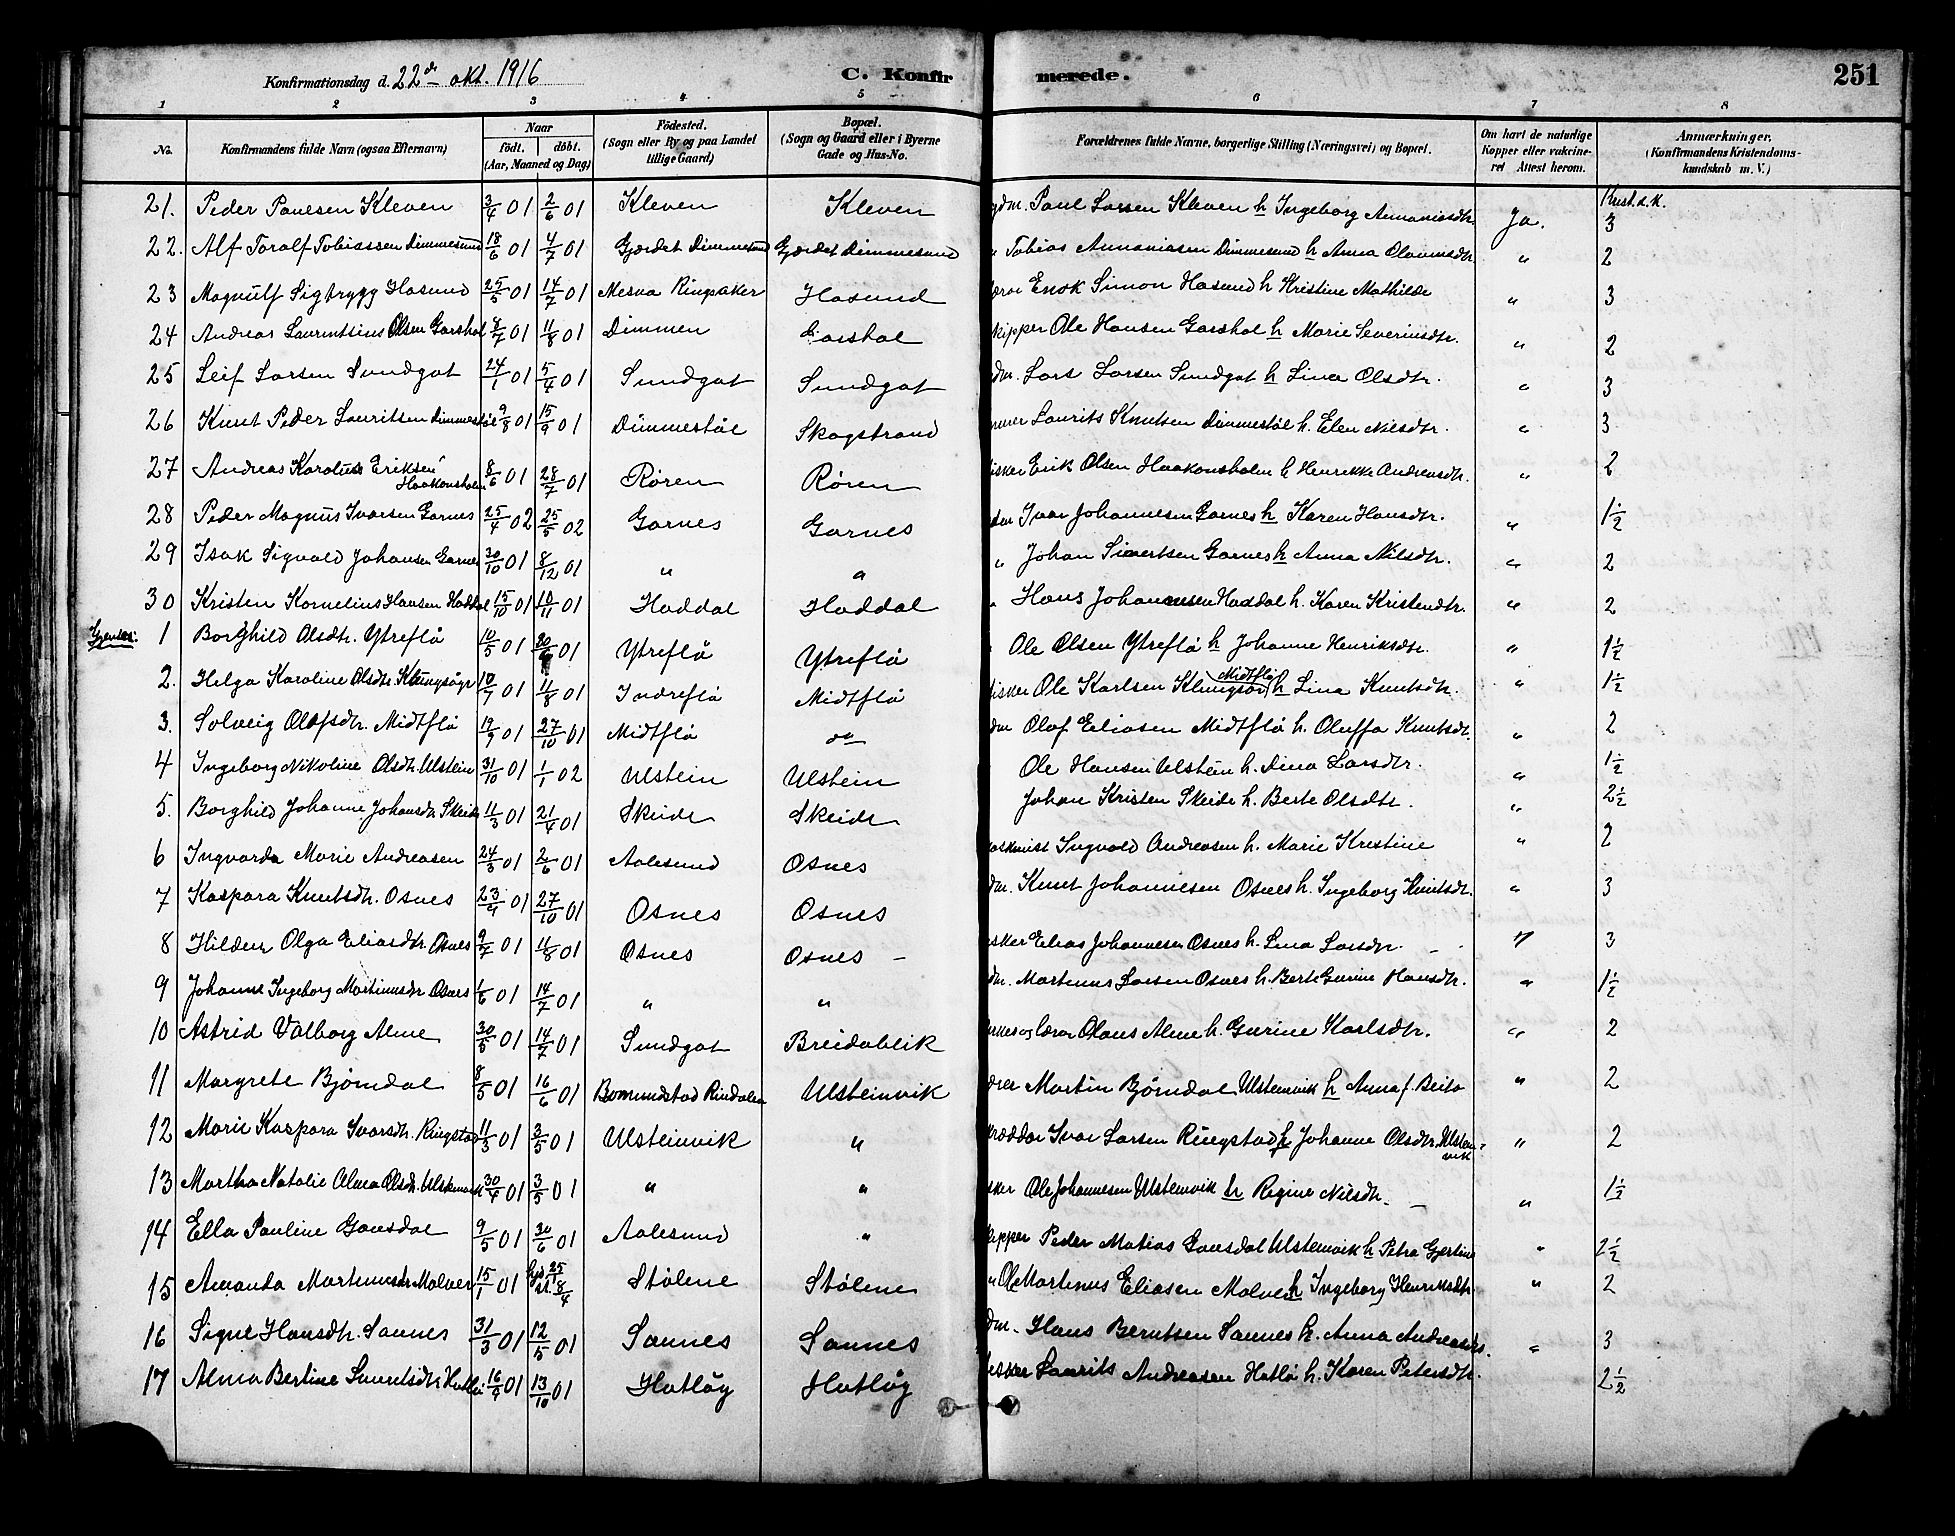 Konfirmationsdag d. 22de okt. 1916
C. Konfirmerede.
251
1 2 3 4 5 6 7 8
No.
Konfirmandens fulde Navn (ogsaa Efternavn)
Naar
født. døbt.
(Aar, Maaned og Dag)
Fødested.
(Sogn eller By og paa Landet
tillige Gaard)
Bopæl.
(Sogn og Gaard eller i Byerne
Gade og Hus-No.
Forældrenes fulde Navne, borgerlige Stilling (Næringsvei) og Bopæl.
Om havt de naturlige
Kopper eller vakcine-
ret Attest herom.
Anmærkninger,
(Konfirmandens Kristendoms-
kundskab m. V.)
Krist.d.k.
21. Peder Paulsen Kleven 3/4 01 2/6 01 Kleven Kleven gdm. Paul Larsen Kleven h Ingeborg Annaniasdtr. Ja. 3
22. Alf Toralf Tobiassen Dimmesund 18/6 01 4/7 01 Gjerdet Dimmesund Gjerdet Dimmesund " Tobias Annaniasen Dimmesund h Anna " 2
23 Magnulf Sigtrygg Hasund 25/5 01 14/7 01 Mesna Ringsaker Hasund Enok Simon Hasund h Kristine Mathilde " 3
24 Andreas Laurentsius Olsen Garshol 4/7 01 11/8 01 Dimmen Garshol Ole Hansen Garshol h Marie Severinsdtr. " 2
25 Leif Larsen Sundgot 24/1 01 5/4 01 Sundgot Sundgot Lars Larsen Sundgot h Lina Olsdtr. " 3
26 Knut Peder Lauritsen Dimmestøl 9/8 01 15/9 01 Dimmestøl Skogstrand Laurits Knutsen Dimmestøl h. Elen Nilsdtr. " 3
27 Andreas Karolius Eriksen Haakonsholm 8/6 01 28/7 01 Røren Røren Erik Olsen Haakonsholm h Henrikke Andreasdtr. " 2
28 Peder Magnus Ivarsen Garnes 25/4 02 25/5 02 Garnes Garnes Ivar Johannesen Garnes h Karen Hansdtr. " 1½
29 Isak Sigvald Johansen Garnes 30/10 01 8/12 01 " " " Johan Sivertsen Garnes h Anna Nilsdtr. " 2
30 Kristen Kornelius Hansen Haddal 15/10 01 10/11 01 Haddal Haddal " Hans Johannesen Haddal h. Karen Kristendtr. " 2
1 Borghild Olsdtr. Ytreflø 10/5 01 30/6 01 Ytreflø Ytreflø Ole Olsen Ytreflø h Johanne Henriksdtr. " 1½
2. Helga Karoline Olsdtr. Klungsøyr 10/7 01 11/8 01 Indreflø Midtflø Ole Karlsen Klungsøir Midtflø h Lina Knutsdtr. " 1½
3. Solveig Olafsdtr. Midtflø 19/9 01 27/10 01 Midtflø do Olaf Eliasen Midtflø h. Oluffa Knutsdtr. " 2
4 Ingeborg Nikoline Olsdtr. Ulstein 31/10 01 1/1 02 Ulstein Ulstein Ole Hansen Ulstein h. Dina Larsdtr. " 1½
5. Borghild Johanne Johansdtr Skeide 11/3 01 21/4 01 Skeide Skeide Johan Kristen Skeide h. Berte Olsdtr. " 2½
6 Ingvarda Marie Andreasen 24/3 01 2/6 01 Aalesund Osnes Ingvald Andreasen h. Marie Kristine " 2
7 Kaspara Knutsdtr. Osnes 23/9 01 27/10 01 Osnes Osnes Knut Johannesen Osnes h. Ingeborg Knutsdtr. " 3
8 Hildur Olga Eliasdtr. Osnes 9/7 01 11/8 01 Osnes Osnes Elias Johannesen Osnes h. Lina Larsdtr. " 3
9 Johanne Ingeborg Martinusdtr Osnes 1/6 01 14/7 01 " " Martinus Larsen Osnes h. Berte Gurine Hansdtr. " 1½
10 Astrid Valborg Alme 30/5 01 14/7 01 Sundgot Breidablik Olaus Alme h. Gurine Karlsdtr. " 2
11 Margrete Bjørndal 8/5 01 16/6 01 Rindalen Ulsteinvik Martin Bjørndal Ulsteinvik h Anna f. Beito " 2
12 Marie Kaspara Ivarsdtr. Ringstad 11/3 01 3/5 01 Ulsteinvik " Ivar Larsen Ringstad h Johanne Olsdtr. Ulsteinvik " 2
13 Martha Natalie Alma Olsdtr. Ulsteinvik 30/4 01 3/5 01 " " Ole Johannesen Ulsteinvik h Regine Nilsdtr. " 1½
14 Ella Pauline Gausdal 9/5 01 30/6 01 Aalesund " Peder Matias Gausdal Ulsteinvik h Petra Gjertine " 2½
15 Amanda Martinusdtr Malver 15/1 01 25/1 8/4 Stølene Stølene " Ole Martinus Eliasen Malver h Ingeborg Henriksdtr " 2
16 Signe Hansdtr. Sannes 31/3 01 12/5 01 Sannes Sannes Hans Berntsen Sannes h. Anna Andreasdtr. " 3
17 Alma Bertine Lauritsdtr Hatlø 16/9 01 13/10 01 Hatløy Hatløy Laurits Andreasen Hatlø h. Karen Petersdtr. 2½